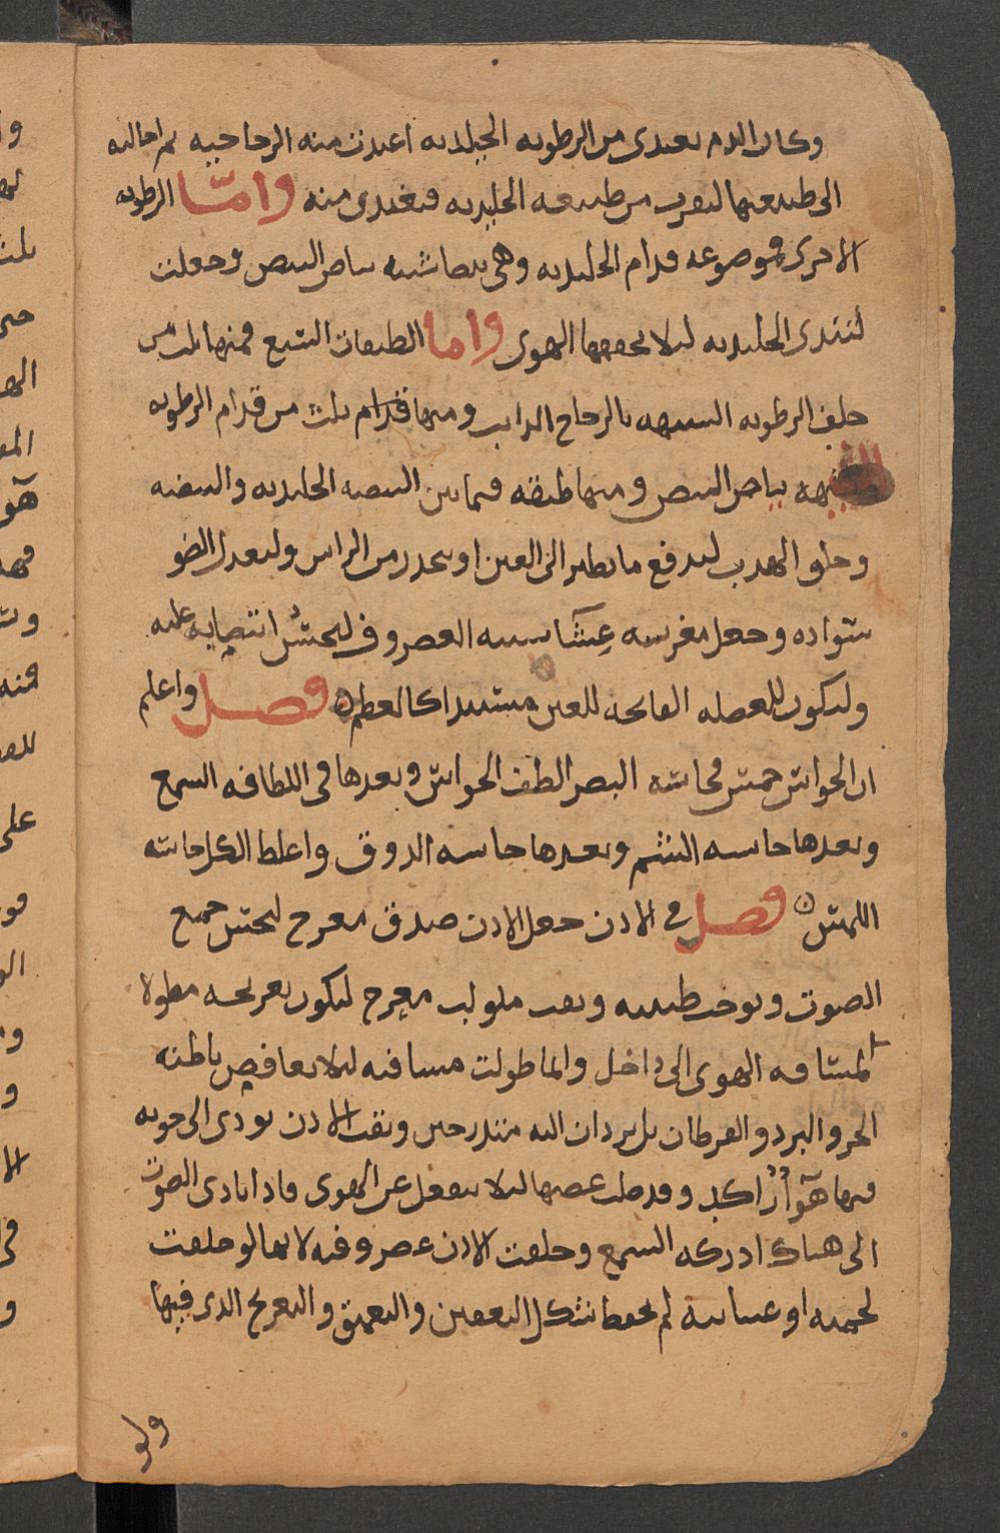 وكان الدم بعيدى من الرطوبه الجليديه اعدت منه الزجاجيه ثم احالته
الى طبيعتها لتقرب من طبيعه الجليديه فتغتدى منه واما الرطوبه
الاخرى فموضوعه قدام الجليديه وهى بيضا شبيه بياض البيض وجعلت
لتندى الجليديه ليلا يجففها الهوى واما الطبقات السبع فمنها ثلث من
خلف الرطوبه الشبيهه بالزجاج الدايب ومنها قدام ثلث من قدام الرطوبه
الشبيهه بياض البيض ومنها طبقه فيما بين البيضيه الجليديه والبيضيه
وخلق الهدب ليدفع ما يطير الى العين او ينحدر من الراس وليعدل الضو
بسواده وجعل مغرسه غشا يشبه الغضروف ليحسن انتصابه عليه
وليكون للعضله الفاتحه للعين مستندا كالعظم فصل واعلم
ان الحواس خمس فحاسه البصر الطف الحواس وبعدها فى اللطافه السمع
وبعدها حاسه الشم وبعدها حاسه الدوق واغلظ الكل حاسه
اللمس فصل فى الادن جعل الادن صدف معرج ليحبس جميع
الصوت وتوخب طنينه وثقب ملولب معرج ليكون تعريجه مطولا
لمسافه الهوى الى داخل وانما طولت مسافته ليلا يغافص باطنه
الحر والبرد المفرطان بل يردان اليه متدرجين وثقب الادن يودى الى جوبه
فيها هوآ راكد وقد صلب عصبها ليلا ينفعل عن الهوى فادا تادى الصوت
الى هناك ادركه السمع وخلقت الادن غضروفيه لانها لو خلقت
لحميه او غشاييه لم تحفظ شكل التقعير والتعميق والتعريج الدى فيها
ولو